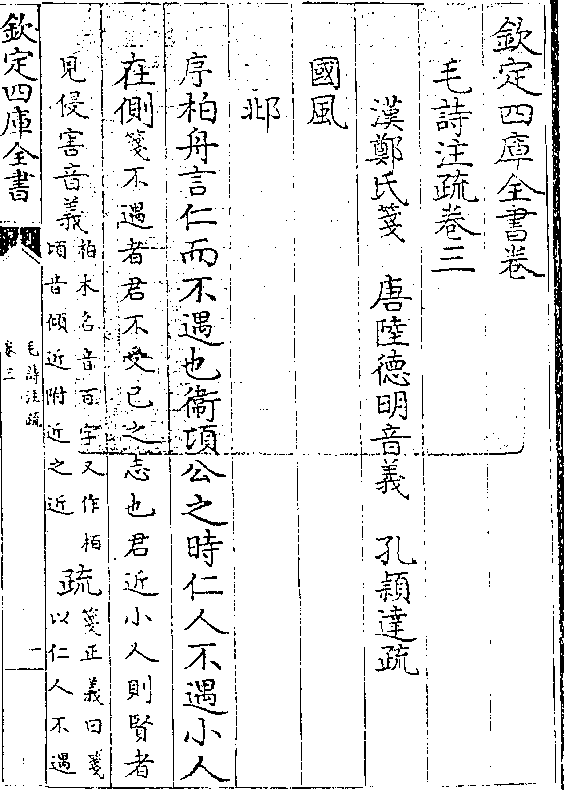 欽定四庫全書卷
毛詩注疏卷三
漢鄭氏箋　唐陸德明音義　孔穎達疏
國風
邶
序柏舟言仁而不遇也衞頃公之時仁人不遇小人
在側箋不遇者君不受已之志也君近小人則賢者
見侵害音義柏木名音百字又作栢
頃音傾近附近之近
疏箋正義曰箋
以仁人不遇
欽定四庫全書
毛詩注疏
卷三
一